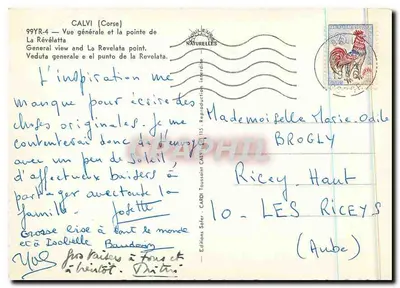 CALVI (Corse)
99YR-4 — Vue générale et la pointe de
La Révélatta
General view and La Revelata point.
Veduta generale e el punto de la Revelata.
NATURELLES
L'inspiration me
manque pour écrire des
choses originales. Je me
contenterai donc de t'envoyer
avec un peu de soleil,
d'affectueux baisers à
partager avec toute la
famille. Josette
Grosse bise à tout le monde
et à Isabelle
Gros baisers à tous et
à bientôt.
Editions Sofer - CARDI Toussaint CALVI
Reproduction interdite
Mademoiselle Marie-Odile
BROGLY
Ricey-Haut
10 - LES RICEYS
(Aube)